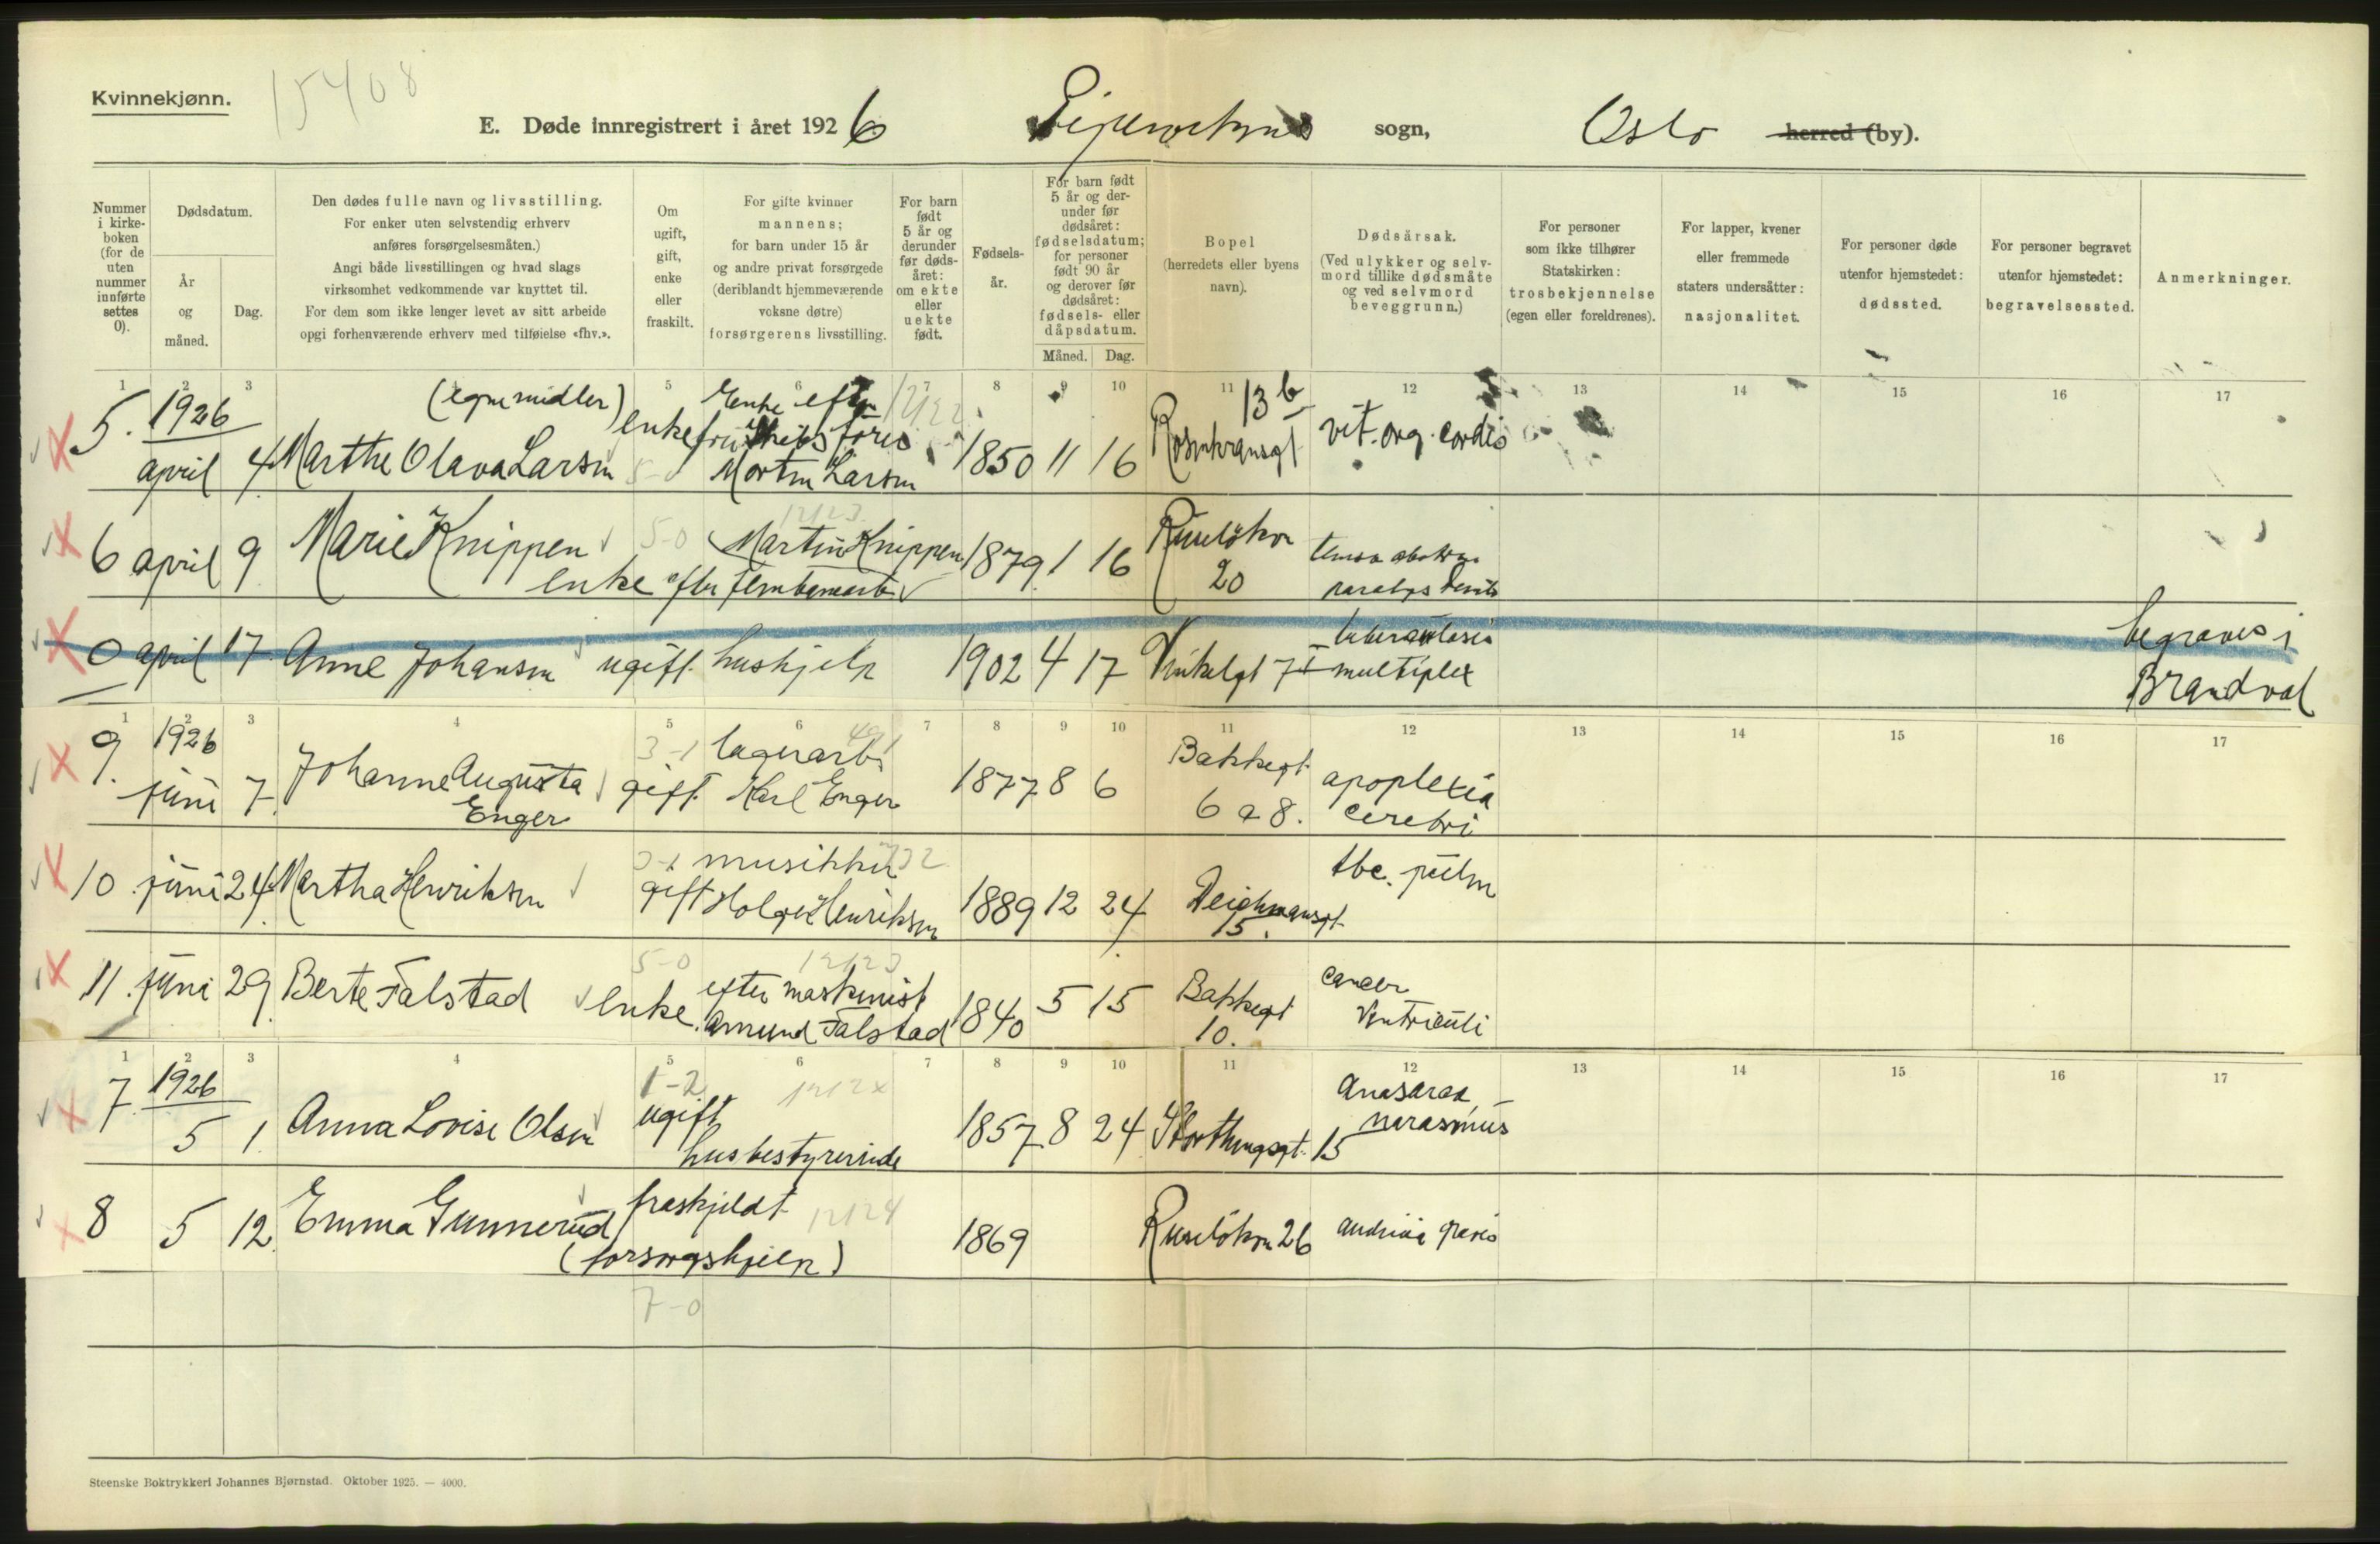 Kvinnekjønn.
15408
E. Døde innregistrert i året 1926
sogn,
Oslo herred (by).
Nummer i kirkeboken (for de uten nummer innførte settes 0).
Dødsdatum.
År og måned.
Dag.
Den dødes fulle navn og livsstilling.
For enker uten selvstendig erhverv
anføres forsørgelsesmåten.)
Angi både livsstillingen og hvad slags
virksomhet vedkommende var knyttet til.
For dem som ikke lenger levet av sitt arbeide
opgi forhenværende erhverv med tilføielse «fhv.».
Om ugift, gift, enke eller fraskilt.
For gifte kvinner
mannens;
for barn under 15 år
og andre privat forsørgede
(deriblandt hjemmeværende
voksne døtre)
forsørgerens livsstilling.
For barn født 5 år og derunder før dødsåret: om ekte eller uekte født.
Fødselsår.
For barn født 5 år og derunder før dødsåret: fødselsdatum; for personer født 90 år og derover før dødsåret: fødsels- eller dåpsdatum.
Måned. Dag.
Bopel
(herredets eller byens
navn).
Dødsårsak.
(Ved ulykker og selvmord tillike dødsmåte og ved selvmord beveggrunn.)
For personer
som ikke tilhører
Statskirken:
trosbekjennelse
(egen eller foreldrenes).
For lapper, kvener
eller fremmede
staters undersåtter:
nasjonalitet.
For personer døde
utenfor hjemstedet:
dødssted.
For personer begravet
utenfor hjemstedet:
begravelsessted.
Anmerkninger.
1 2 3 5 6 7 8 9 10 11 12 13 14 15 16 17
5. 1926 (egne midler) Enke efter 13b
april 4 Marthe Olava Larsen enke Morten Larsen 1850 11 16 Rosenkransgt vit. org. cordis
6 april 9 Marie Knippen 5-0 Martin Knippen 1879 1 16 Ruseløkv 20
enke efter
0 april 17 Anne Johansen ugift hushjelp 1902 4 17 Vinkelgt 7 tuberculosis multiplex begraves i Brandval
1 2 3 4 5 6 7 8 9 10 11 12 13 14 15 16 17
9. 1926 3-1 lagerarb.
juni 7 Johanne Augusta Enger gift Karl Enger 1877 8 6 Bakkegt 6 a 8. apoplexia cerebri
10 juni 24 Martha Henriksen gift musikker Holger Henriksen 1889 12 24 Deichmansgt 15. tbc. pulm
11 juni 29 Berte Falstad 5-0 enke efter maskinist Amund Falstad 1840 5 15 Bakkegt 10. cancer ventriculi
1 2 3 4 5 6 7 8 9 10 11 12 13 14 15 16 17
7 1926 1-2
5 1 Anna Lovise Olsen ugift husbestyrerinde 1857 8 24 Storthingsgt. 15 Anasarca marasmus
8 5 12 Emma Gunnerud fraskjeldt 1869 Ruseløkv 26
(forsorgshjelp)
7-0
Steenske Boktrykkeri Johannes Bjørnstad. Oktober 1925. — 4000.